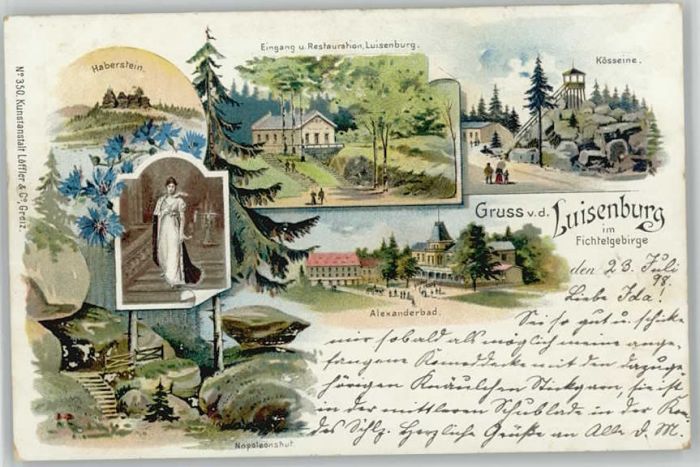 Nº 350. Kunstanstalt Löffler & Cº, Greiz.
Haberstein.
Eingang u. Restauration, Luisenburg.
Kösseine.
Gruss v. d. Luisenburg
im
Fichtelgebirge
Alexanderbad.
Napoleonshut.
den 23. Juli
98.
Liebe Ida!
Sei so gut u. schicke
mir sobald als möglich meine ange-
fangene Komoddecke mit den dazuge-
hörigen Knäulchen Stickgarn, sie ist
in der mittleren Schublade in der
des Schlz. Herzliche Grüße an Alle d. M.